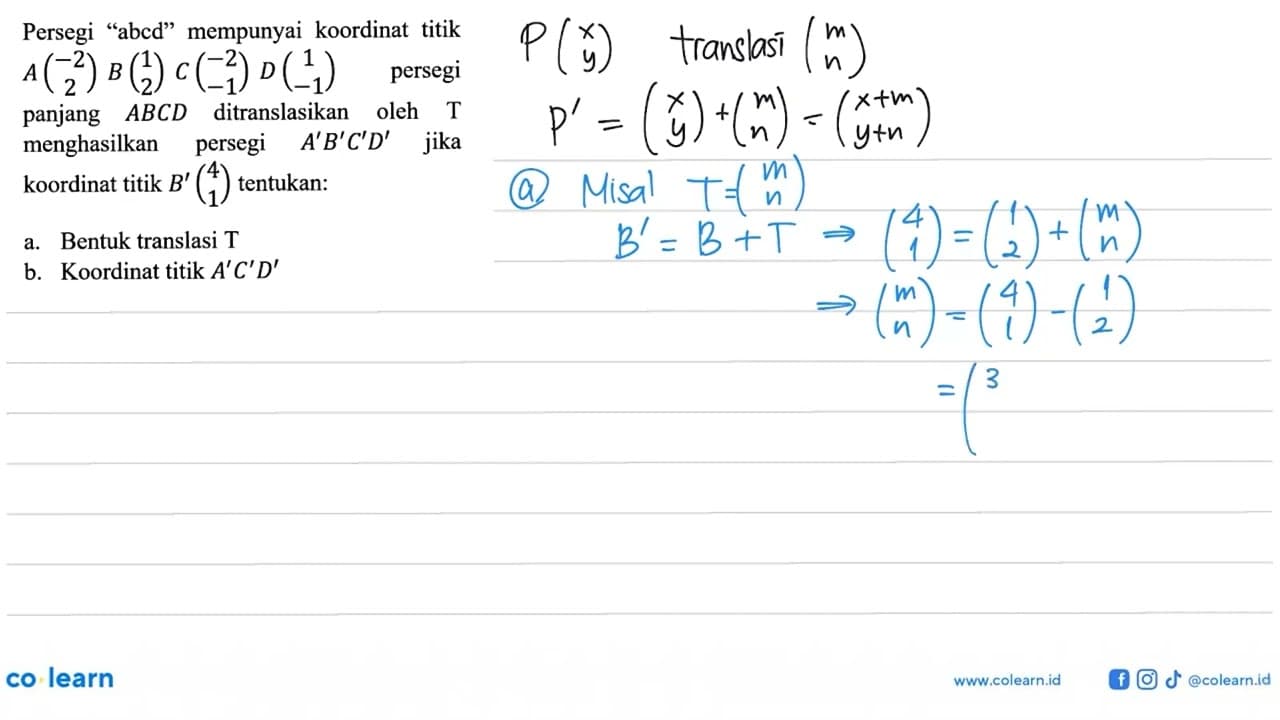 Persegi “abcd” mempunyai koordinat titik
A(−2 2) B(1 2) C(−2 −1) D(1 −1) persegi
panjang ABCD ditranslasikan oleh T
menghasilkan persegi A'B'C'D' jika
koordinat titik B'(4 1) tentukan:
a. Bentuk translasi T
b. Koordinat titik A'C'D'
P(x y) translasi (m n)
P' = (x y) + (m n) = (x+m y+n)
a Misal T = (m n)
B' = B + T ⇒ (4 1) = (1 2) + (m n)
⇒ (m n) = (4 1) - (1 2)
= ( 3
co learn
www.colearn.id
@colearn.id